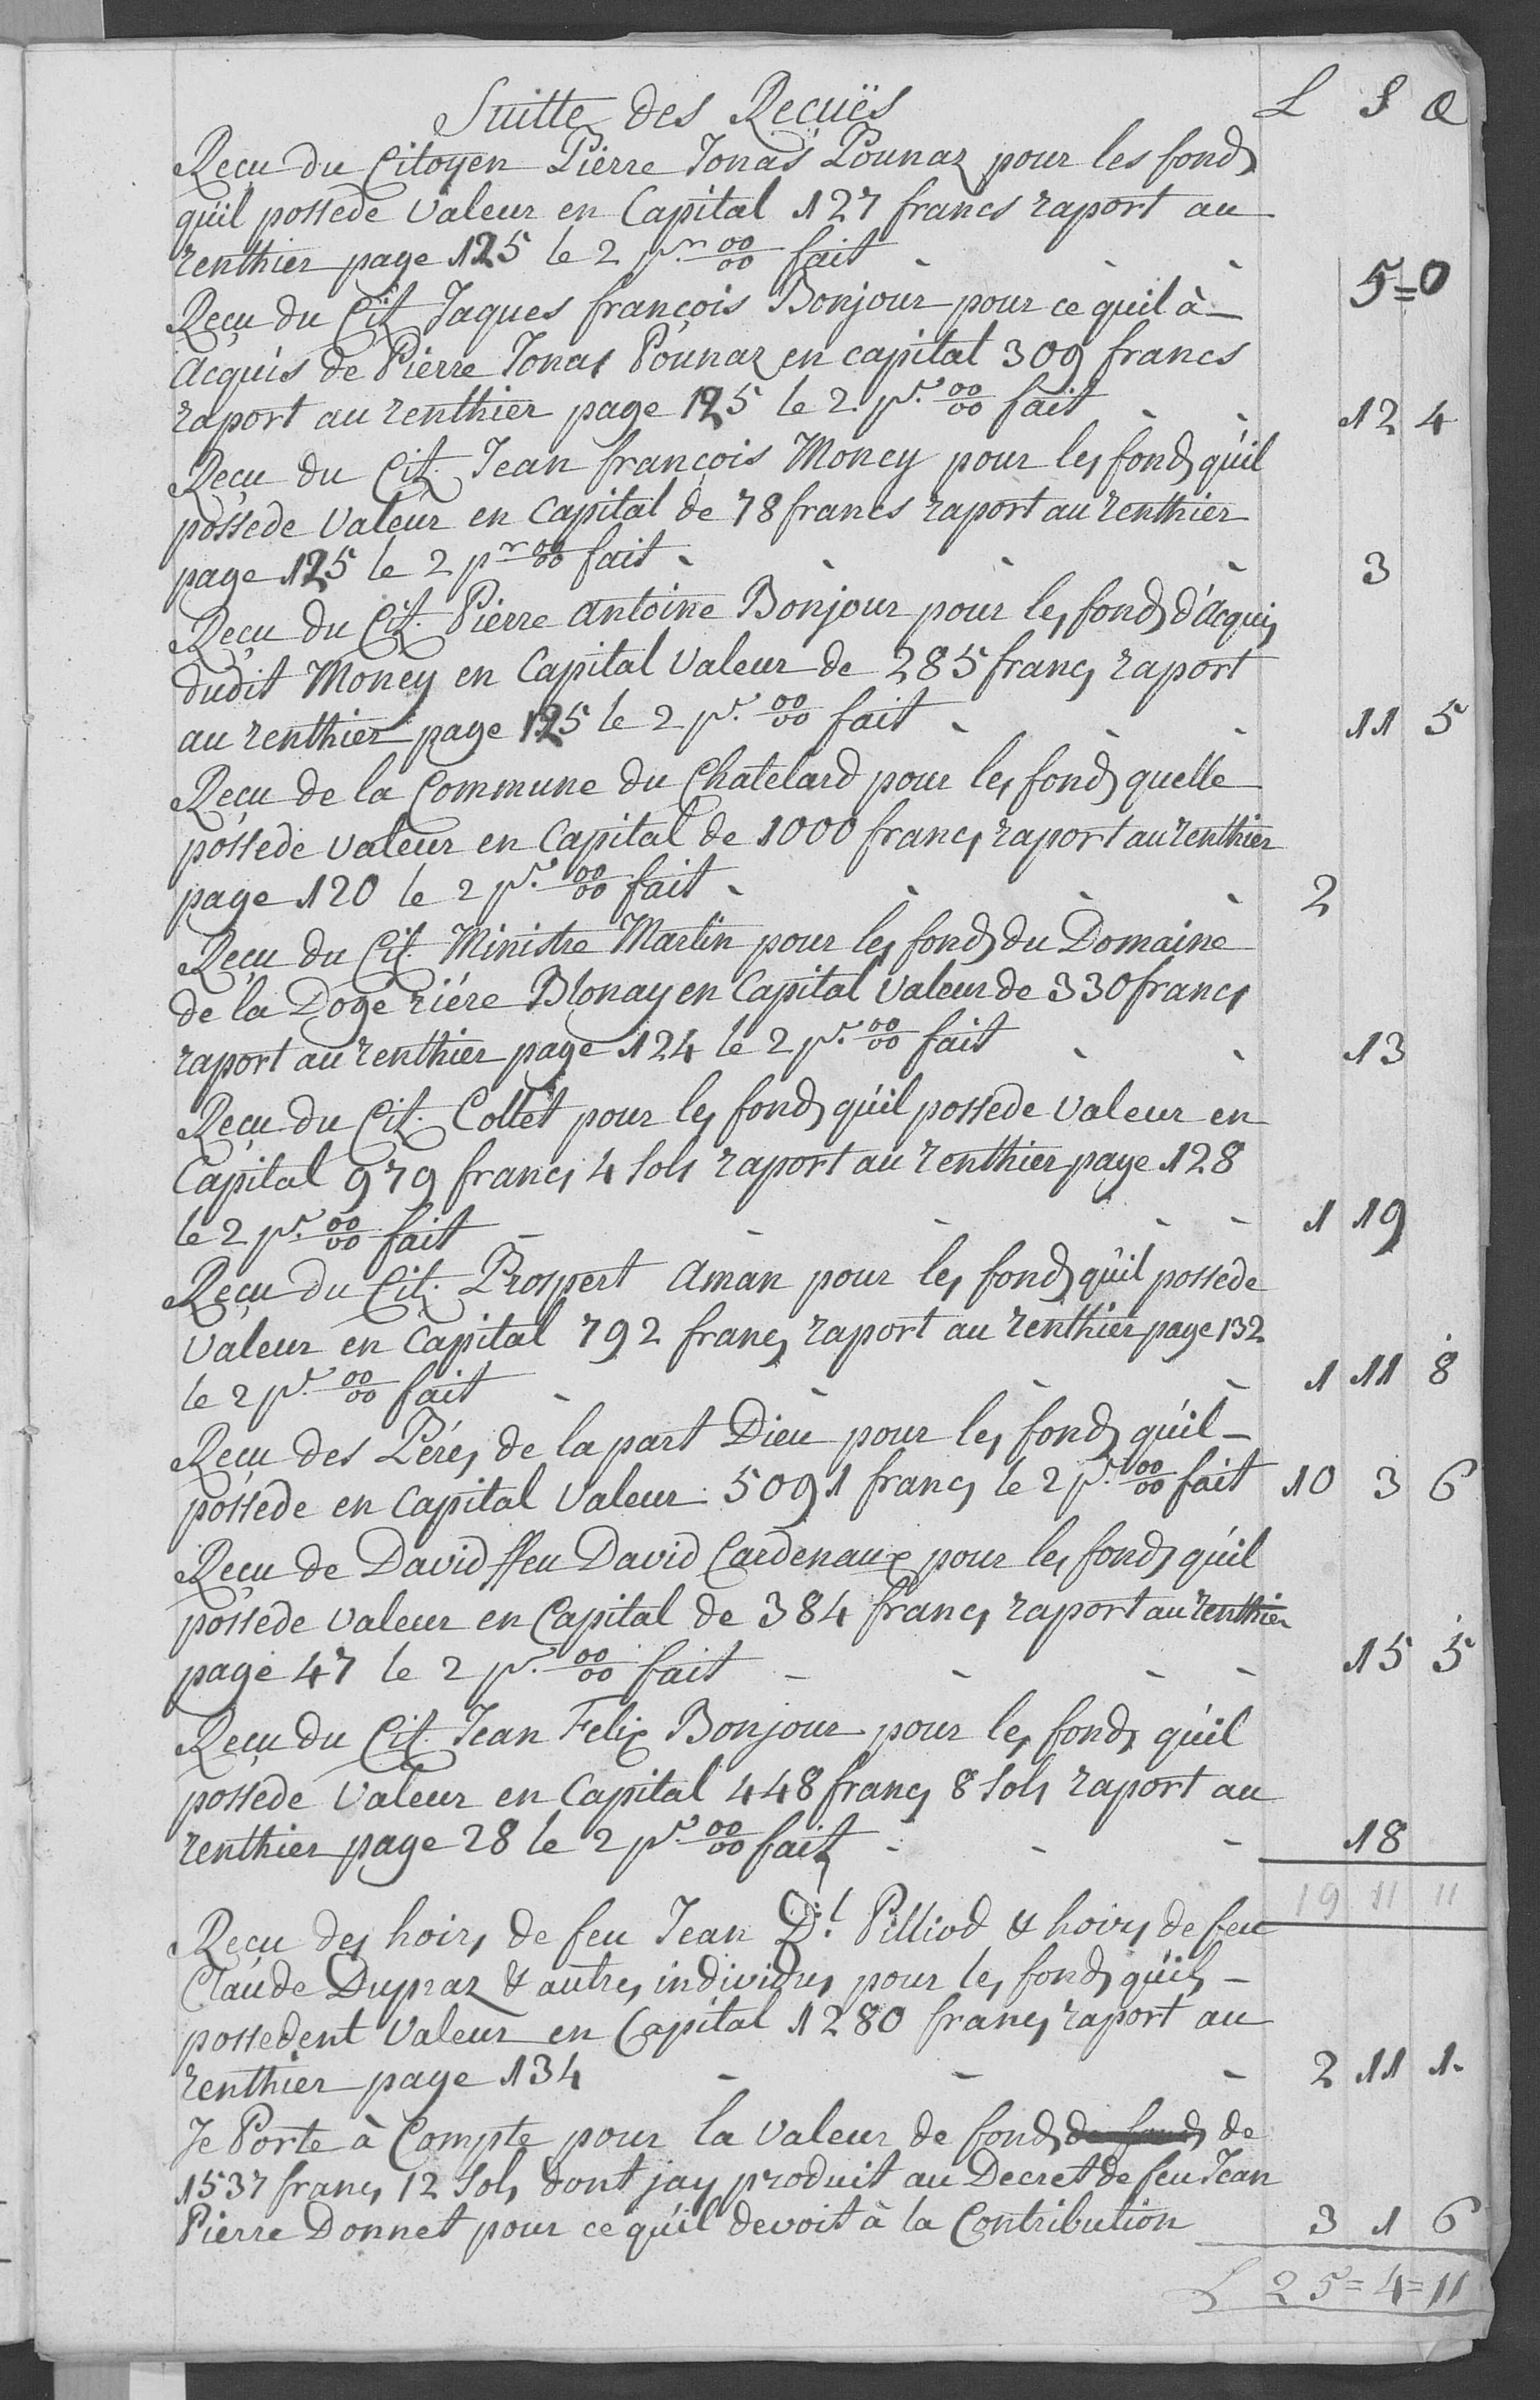 Suitte des Reçuës L S D
Reçu du Citoyen Pierre Jonas Pounaz pour les fonds
qu'il possede valeur en Capital 127 francs raport au
renthier page 125 le 2 pr 00/00 fait - - - 5=0
Reçu du Cit. Jaques françois Bonjour pour ce quil à
acquis de Pierre Jonas Pounaz en capital 309 francs
raport au renthier page 125 le 2 pr. 00/00 fait - - 12 4
Reçu du Cit. Jean françois Money pour les fonds qu'il
possede valeur en Capital de 78 francs raport au renthier
page 125 le 2 pr 00/00 fait - - - - 3
Reçu du Cit. Pierre antoine Bonjour pour les fonds d'acquis
dudit Money en Capital valeur de 285 francs raport
au renthier page 125 le 2 pr. 00/00 fait - - - 11 5
Reçu de la Commune du Chatelard pour les fonds quelle
possede valeur en Capital de 1000 francs raport au renthier
page 120 le 2 pr. 00/00 fait - - - - 2
Reçu du Cit. Ministre Martin pour les fonds du Domaine
de la Doge riére Blonay en Capital valeur de 330 francs
raport au renthier page 124 le 2 pr. 00/00 fait - - 13
Reçu du Cit. Collet pour les fonds qu'il possede valeur en
Capital 979 francs 4 sols raport au renthier page 128
le 2 pr. 00/00 fait - - - - - 1 19
Reçu du Cit. Prospert Aman pour les fonds qu'il possede
valeur en Capital 792 francs raport au renthier page 132
le 2 pr. 00/00 fait - - - - 1 11 8
Reçu des Péres de la part Dieu pour les fonds qu'il -
possede en Capital valeur 5091 francs le 2 pr. 00/00 fait 10 3 6
Reçu de David ffeu David Cardenaux pour les fonds qu'il
possede valeur en Capital de 384 francs raport au renthier
page 47 le 2 pr. 00/00 fait - - - - 15 5
Reçu du Cit. Jean Felix Bonjour pour les fonds qu'il
possede valeur en Capital 448 francs 8 sols raport au
renthier page 28 le 2 pr. 00/00 fait - - - 18
19 11 11
Reçu des hoirs de feu Jean Dl. Pilliod & hoirs de feu
Claude Dupraz & autres individus pour les fonds qu'ils -
possedent valeur en Capital 1280 francs raport au
renthier page 134 - - - 2 11 1.
Je Porte à Compte pour la valeur de fonds de fonds de
1537 francs 12 sols dont jay produit au Decret de feu Jean
Pierre Donnet pour ce qu'il devoit à la Contribution 3 1 6
L 25=4=11